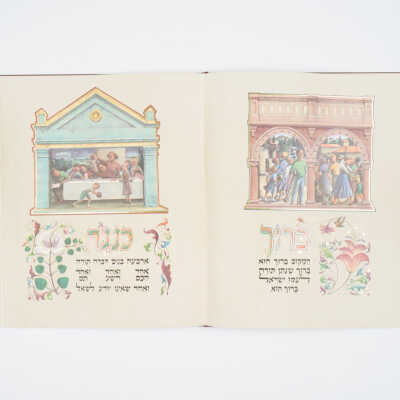 ברוך
המקום ברוך הוא
ברוך שנתן תורה
לעמו ישראל
ברוך הוא
כנגד
ארבעה בנים דברה תורה
אחד ואחד ואחד
חכם רשע תם
ואחד שאינו יודע לשאל